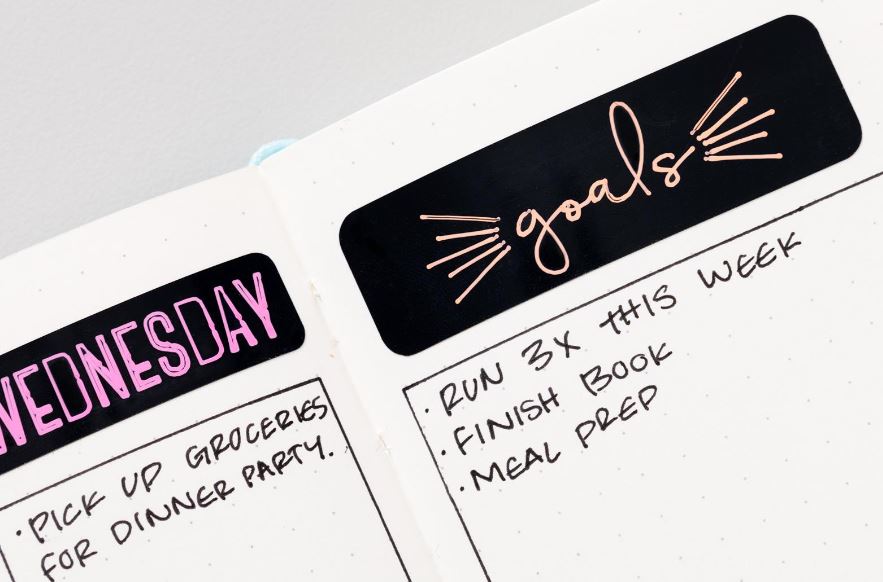 WEDNESDAY
· PICK UP GROCERIES
FOR DINNER PARTY.
goals
· RUN 3X THIS WEEK
· FINISH BOOK
· MEAL PREP